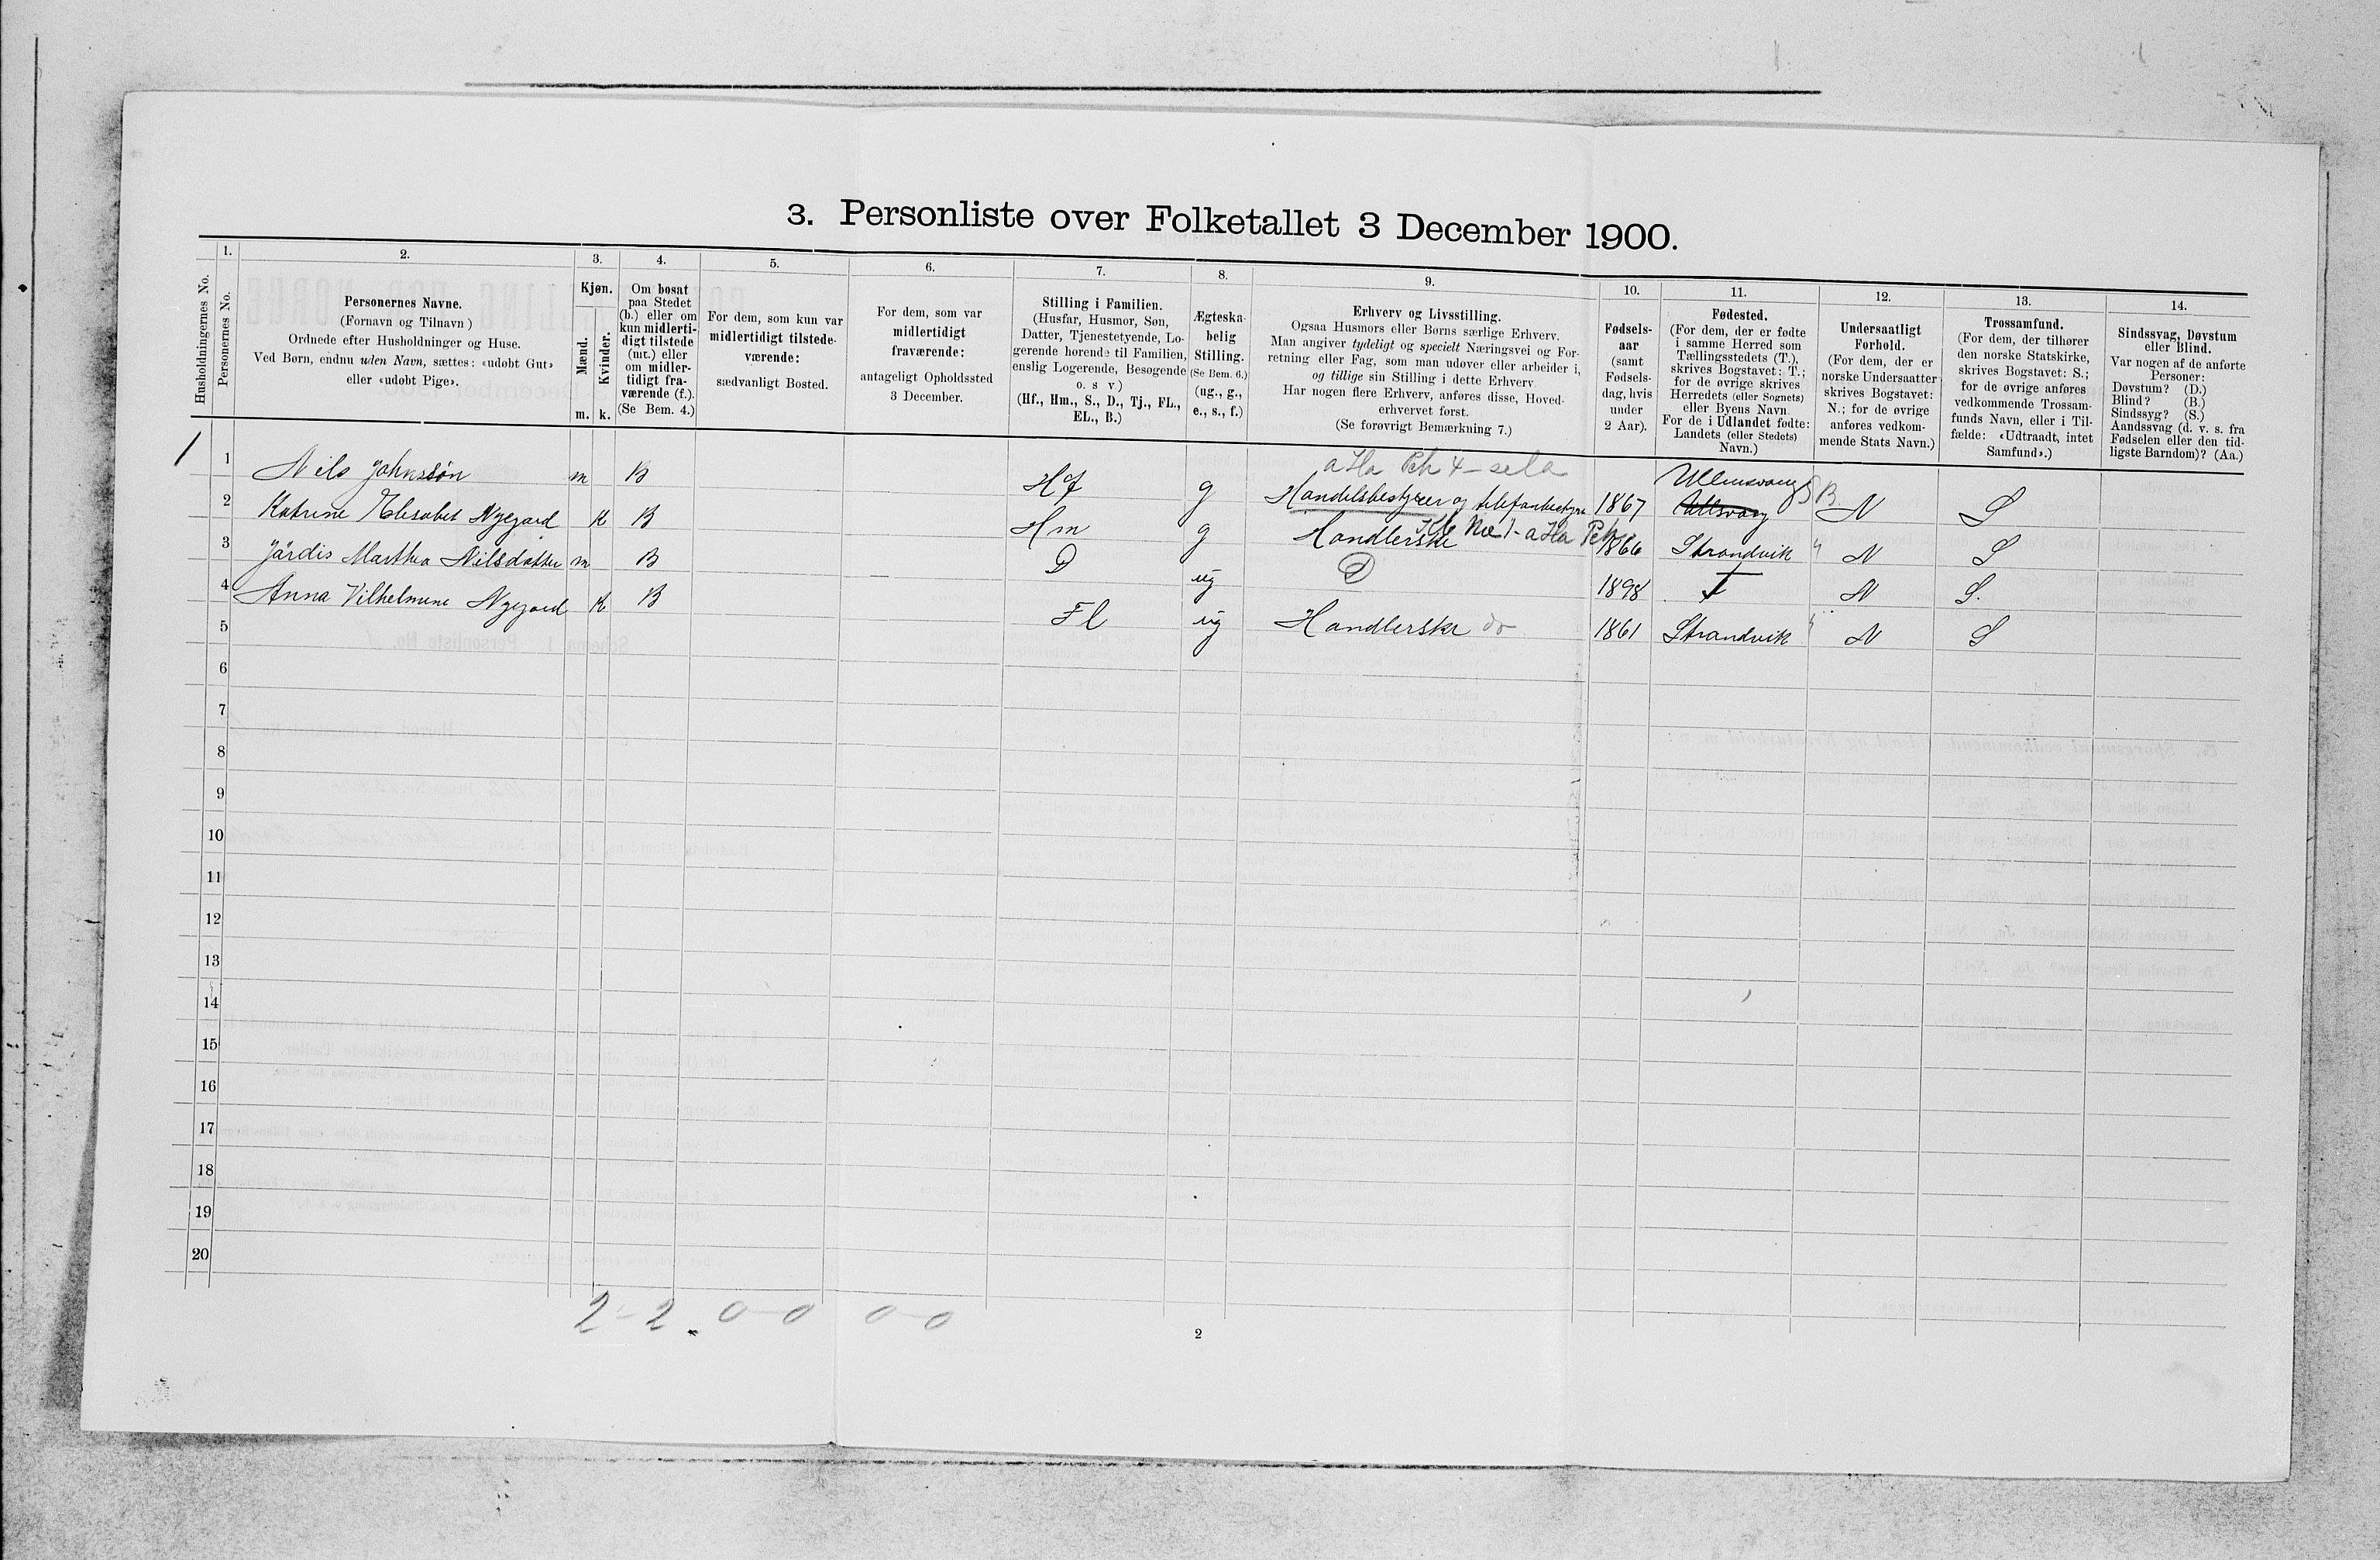 3. Personliste over Folketallet 3 December 1900.
Husholdningernes No.
1.
Personernes No.
2.
Personernes Navne.
(Fornavn og Tilnavn)
Ordnede efter Husholdninger og Huse.
Ved Børn, endnu uden Navn, sættes: «udøbt Gut»
eller «udøbt Pige».
3.
Kjøn.
Mænd.
Kvinder.
m. k.
4.
Om bosat
paa Stedet
(b.) eller om
kun midlerti-
digt tilstede
(mt.) eller
om midler-
tidigt fra-
værende (f.).
(Se Bem. 4.)
5.
For dem, som kun var
midlertidigt tilstede-
værende:
sædvanligt Bosted.
6.
For dem, som var
midlertidigt
fraværende:
antageligt Opholdssted
3 December.
7.
Stilling i Familien.
(Husfar, Husmor, Søn,
Datter, Tjenestetyende, Lo-
gerende hørende til Familien,
enslig Logerende, Besøgende
o. s v)
(Hf., Hm., S., D., Tj., FL.,
EL., B.)
8.
Ægteska-
belig
Stilling.
(Se Bem. 6.)
(ug., g.,
e., s., f.)
9.
Erhverv og Livsstilling.
Ogsaa Husmors eller Børns særlige Erhverv.
Man angiver tydeligt og specielt Næringsvei og For-
retning eller Fag, som man udøver eller arbeider i,
og tillige sin Stilling i dette Erhverv
Har nogen flere Erhverv, anføres disse, Hoved-
erhvervet først.
(Se forøvrigt Bemærkning 7.)
10.
Fødsels-
aar
(samt
Fødsels-
dag, hvis
under
2 Aar).
11.
Fødested.
(For dem, der er fødte
i samme Herred som
Tællingsstedets (T.),
skrives Bogstavet: T.;
for de øvrige skrives
Herredets (eller Sognets)
eller Byens Navn.
For de i Udlandet fødte:
Landets (eller Stedets)
Navn.)
12.
Undersaatligt
Forhold.
(For dem, der er
norske Undersaatter
skrives Bogstavet:
N.; for de øvrige
anføres vedkom-
mende Stats Navn.)
13.
Trossamfund.
(For dem, der tilhører
den norske Statskirke,
skrives Bogstavet: S.;
for de øvrige anføres
vedkommende Trossam-
funds Navn, eller i Til-
fælde: «Udtraadt, intet
Samfund».)
14.
Sindssvag, Døvstum
eller Blind.
Var nogen af de anførte
Personer:
Døvstum? (D.)
Blind? (B.)
Sindssyg? (S.)
Aandssvag (d. v. s. fra
Fødselen eller den tid-
ligste Barndom)? (Aa.)
1 1 Nils Johnssøn m B Hf g Handelsbestyrer og telefonbestyrer 1867 Ullensvang SB N S
2 Katrine Elesabet Nygaard k B Hm g Handlerske 1866 Strandvik " N S
3 Järdis Marthea Nilsdatter m B D ug D 1898 T N S.
4 Anna Vilhelmine Nygaard k B Fl ug Handlerske do 1861 Strandvik " N S
5
6
7
8
9
10
11
12
13
14
15
16
17
18
19
20
2-2. 0-0 0-0
2